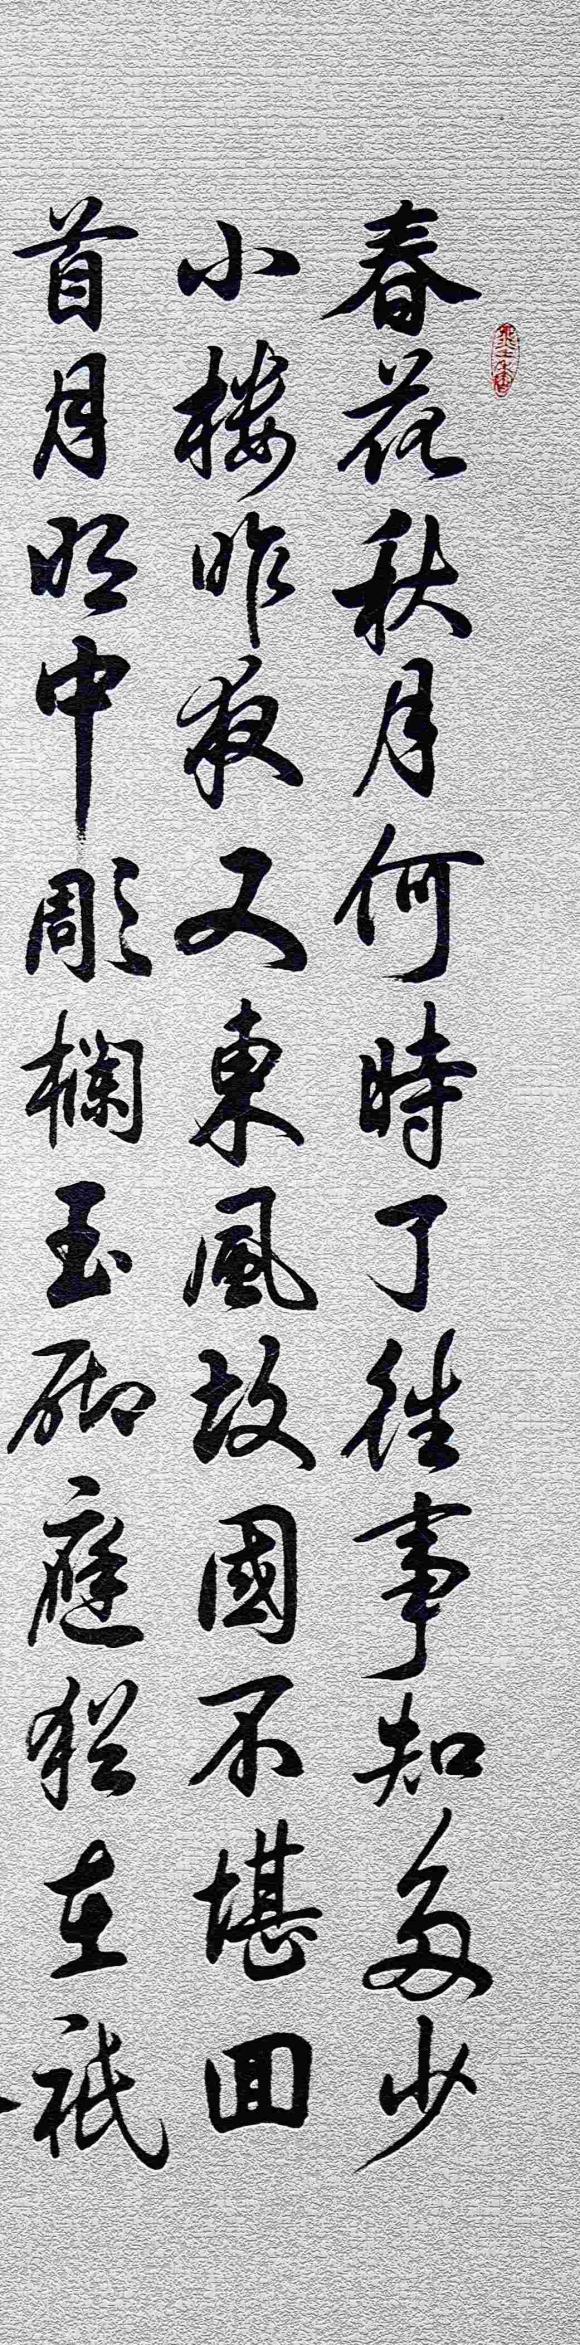 春花秋月何時了往事知多少
小楼昨夜又東風故國不堪回
首月明中彫欄玉砌庭猶在祇